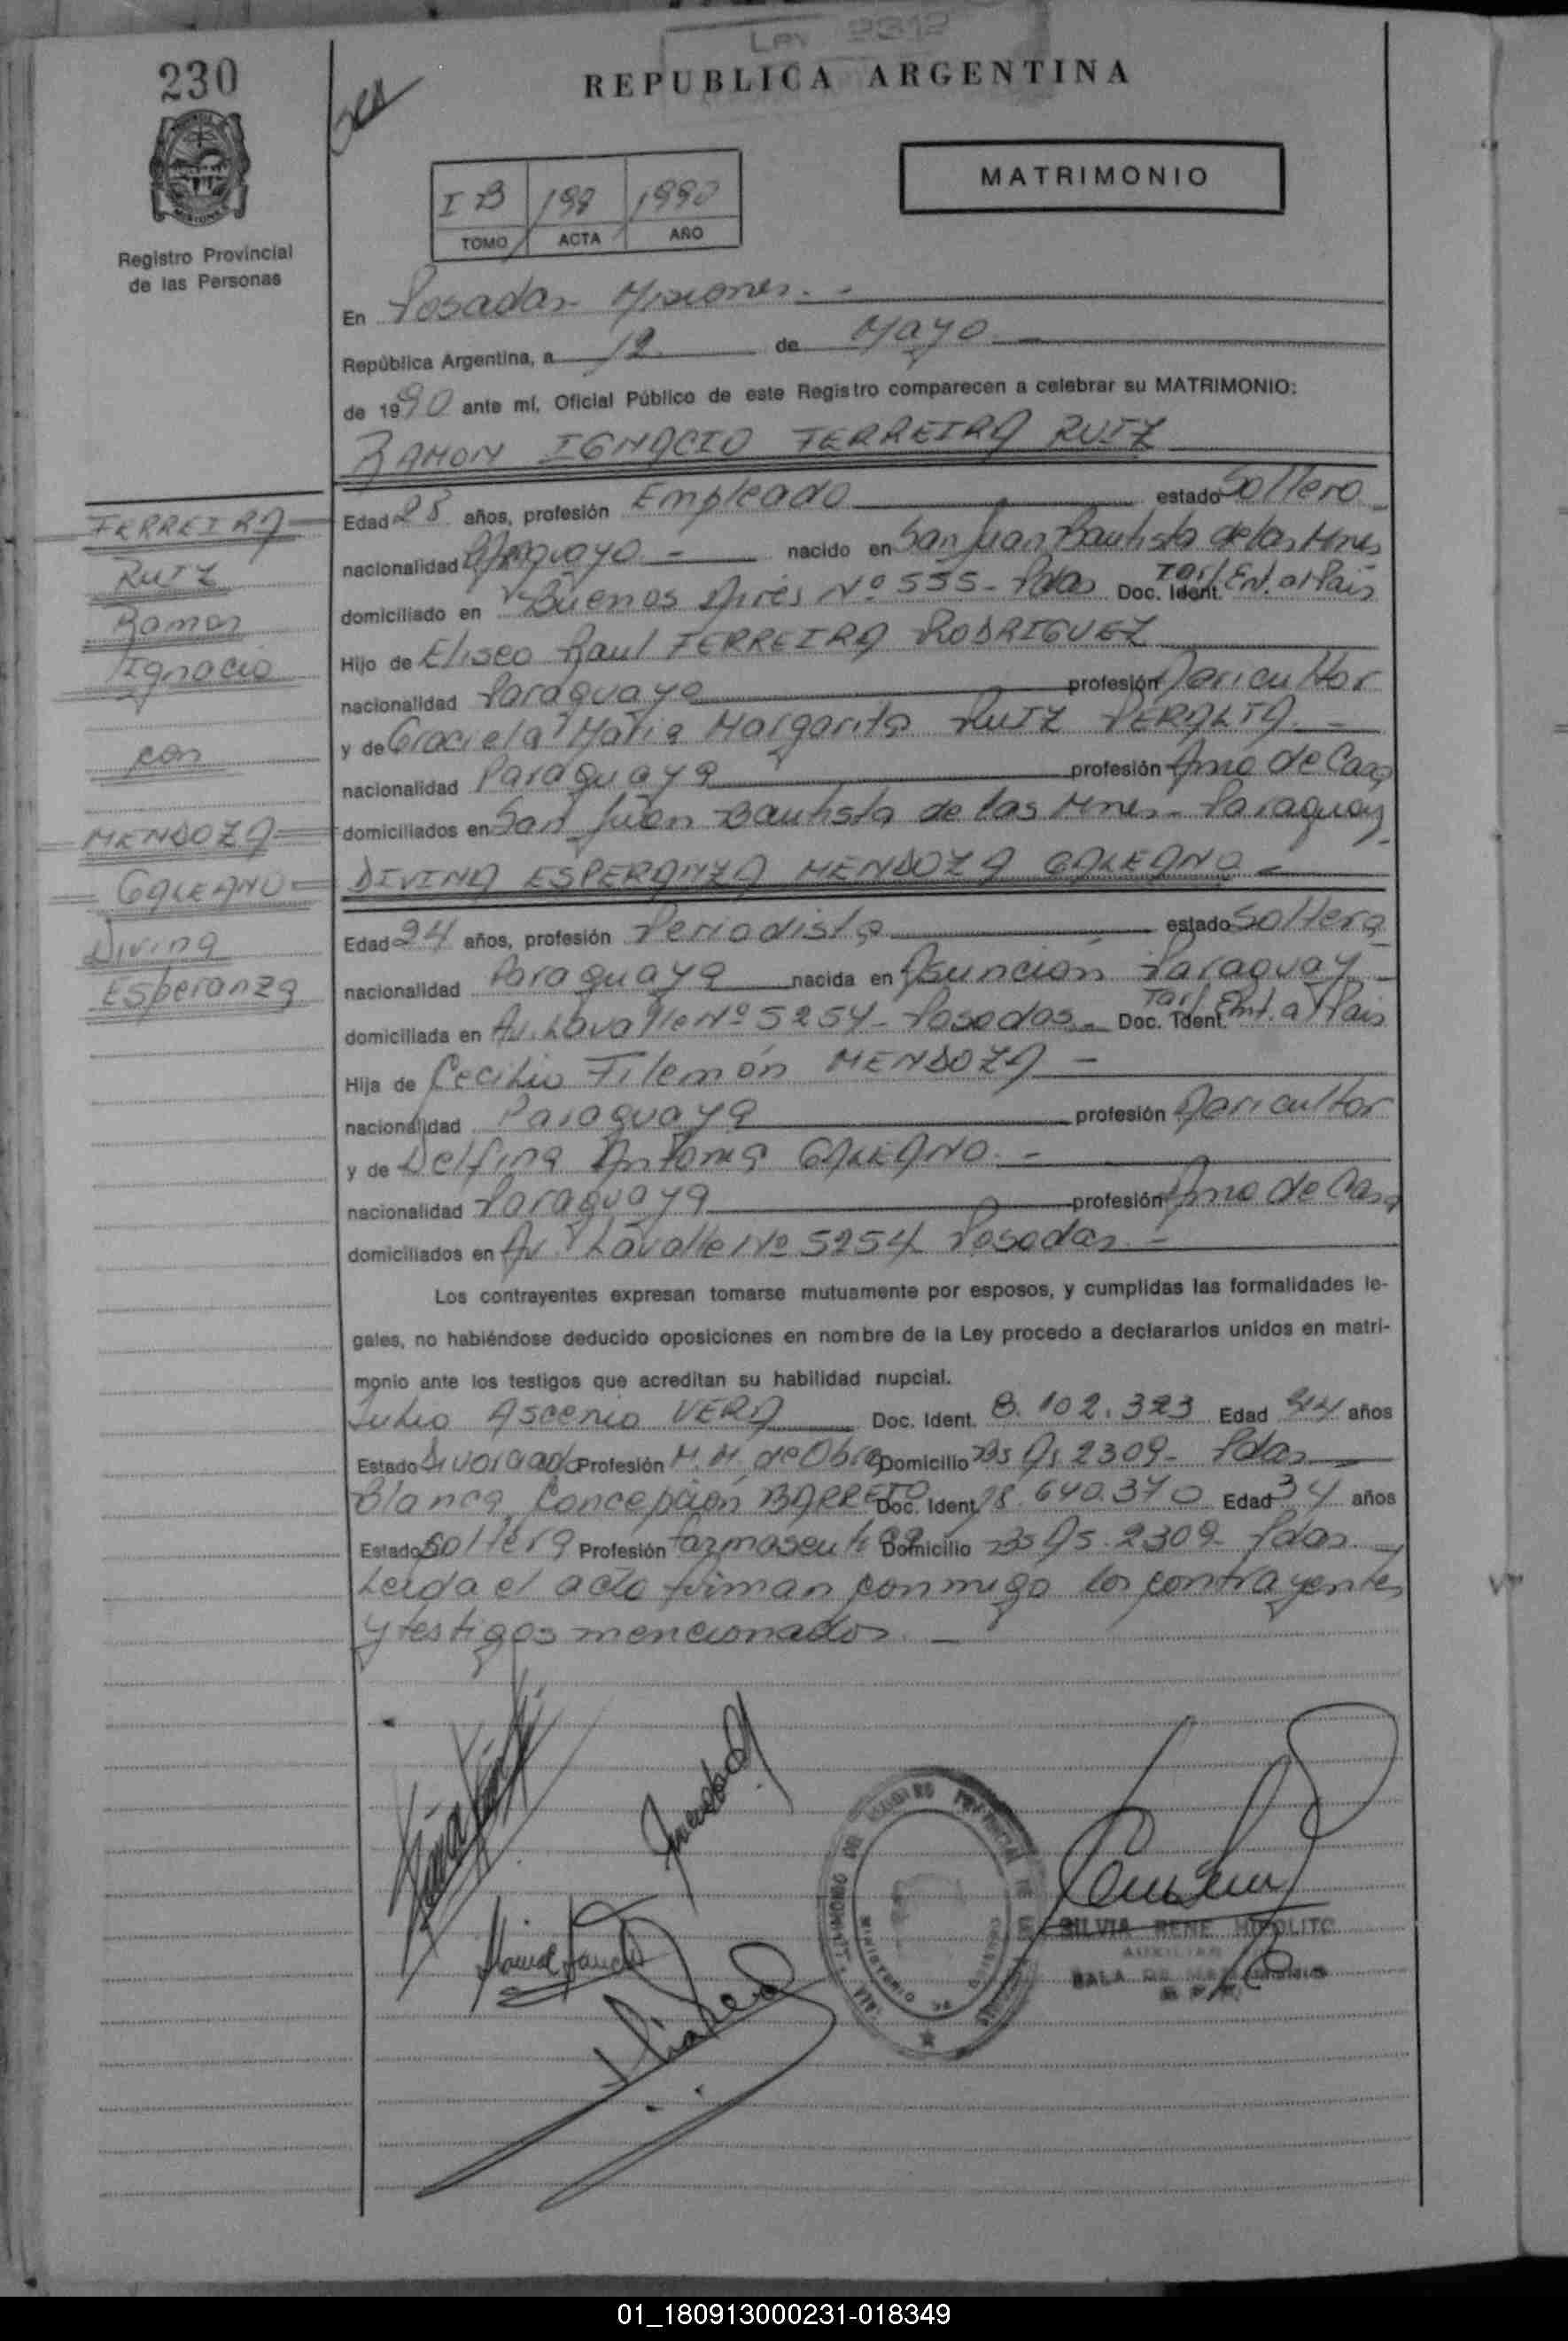 Ley 2312
230
REPUBLICA ARGENTINA
MATRIMONIO
I B 199 1990
TOMO ACTA AÑO
Registro Provincial
de las Personas
En Posadas Misiones.-
República Argentina, a 12 de Mayo
de 1990 ante mí, Oficial Público de este Registro comparecen a celebrar su MATRIMONIO:
RAMON IGNACIO FERREIRA RUIZ
FERREIRA
RUIZ
Ramon
Ignacio
con
MENDOZA
GALEANO
Divina
Esperanza
Edad 28 años, profesión Empleado estado Soltero
nacionalidad Paraguayo - nacido en San Juan Bautista de las Mnes
domiciliado en Buenos Aires Nº 555- Pdas Doc. Ident. Tarj. Ent. al Pais
Hijo de Eliseo Raul FERREIRA RODRIGUEZ
nacionalidad Paraguaya profesión Agricultor
y de Graciela Maria Margarita RUIZ PERALTA -
nacionalidad Paraguaya profesión Ama de Casa
domiciliados en San Juan Bautista de las Mnes- Paraguay-
DIVINA ESPERANZA MENDOZA GALEANO -
Edad 24 años, profesión Periodista estado Soltera
nacionalidad Paraguaya nacida en Asunción Paraguay -
domiciliada en Av. Lavalle Nº 5254- Posadas- Doc. Ident. Tarj. Ent. al Pais
Hija de Cecilio Filemón MENDOZA -
nacionalidad Paraguaya profesión Agricultor
y de Delfina Antonia GALEANO. -
nacionalidad Paraguaya profesión Ama de Casa
domiciliados en Av. Lavalle Nº 5254 Posadas -
Los contrayentes expresan tomarse mutuamente por esposos, y cumplidas las formalidades le-
gales, no habiéndose deducido oposiciones en nombre de la Ley procedo a declararlos unidos en matri-
monio ante los testigos que acreditan su habilidad nupcial.
Julio Ascenio VERA Doc. Ident. 8.102.323 Edad 44 años
Estado Divorciado Profesión M. M. de Obra Domicilio Bs As 2309- Pdas
Blanca Concepción BARRETO Doc. Ident. 18.640.370 Edad 34 años
Estado Soltera Profesión farmaseutica Domicilio Bs As. 2309- Pdas. -
Leida el acta firman conmigo los contrayentes
y testigos mencionados. -
SILVIA RENE HIPOLITO
AUXILIAR
SALA DE
01_180913000231-018349